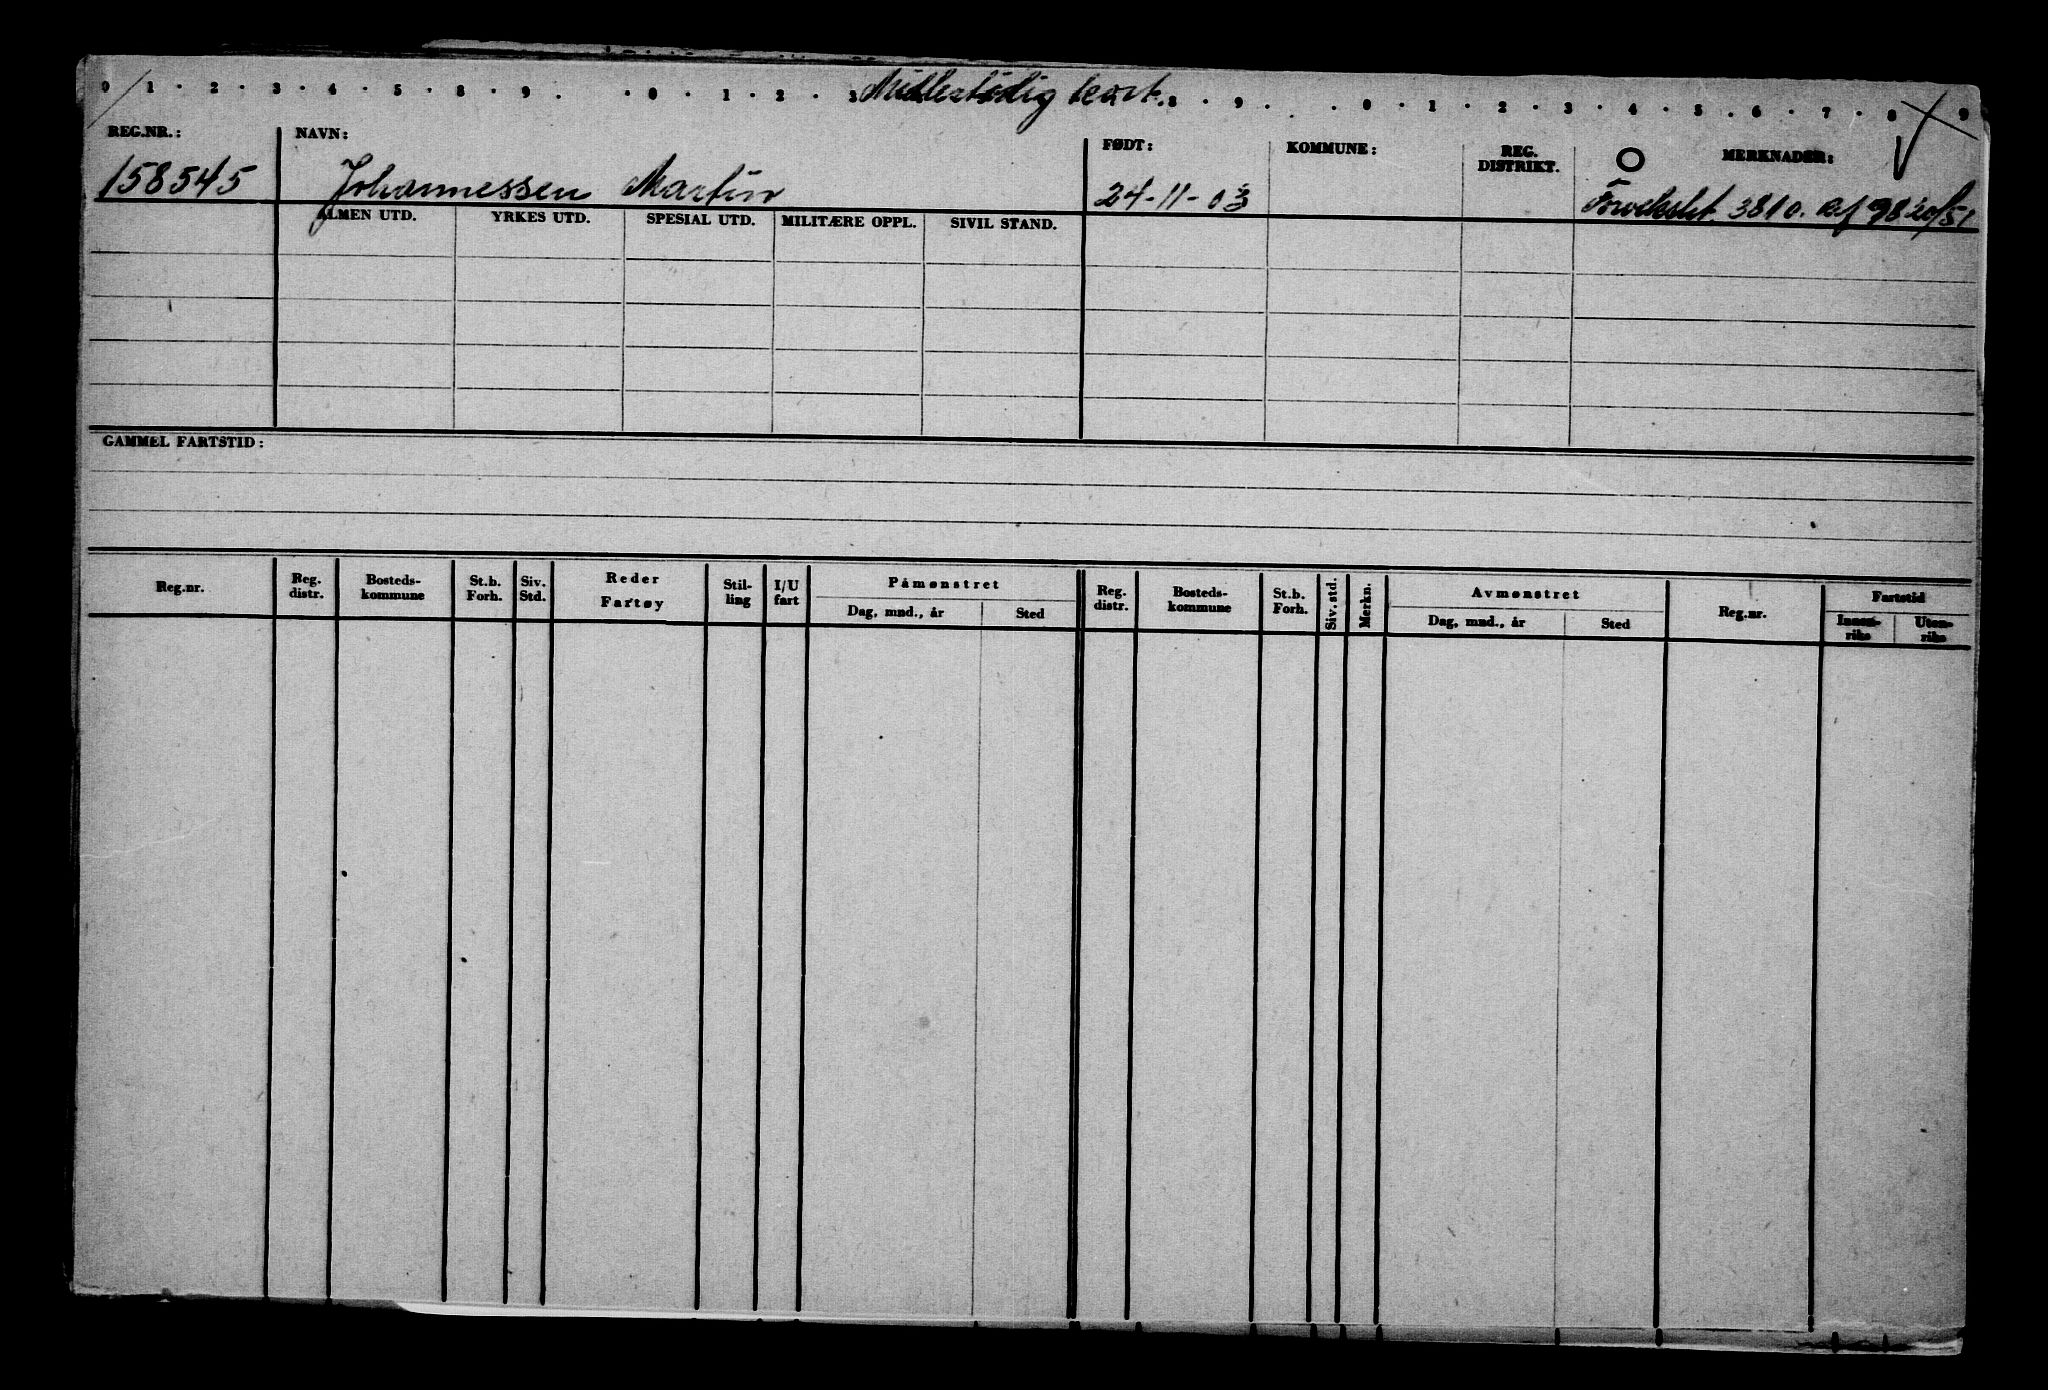 0 · 1 · 2 · 3 · 4 · 5 · 8 · 9 · · 0 · 1 · 2 · 3 Midlertidig kort. 8 · 9 · · 0 · 1 · 2 · 3 · 4 · 5 · 6 · 7 · 8 · 9
REG.NR.: NAVN: FØDT: KOMMUNE: REG. DISTRIKT. MERKNADER:
158545 Johannessen Martin 24-11-03 3810. 98 20/51
ALMEN UTD. YRKES UTD. SPESIAL UTD. MILITÆRE OPPL. SIVIL STAND.
GAMMEL FARTSTID:
Reg.nr. Reg. distr. Bosteds-kommune St.b. Forh. Siv. Std. Reder Fartøy Stil-ling I/U fart Påmønstret Reg. distr. Bosteds-kommune St.b. Forh. Siv. std. Merkn. Avmønstret Reg.nr. Fartstid
Dag, mnd., år Sted Dag, mnd., år Sted Innen-riks Uten-riks